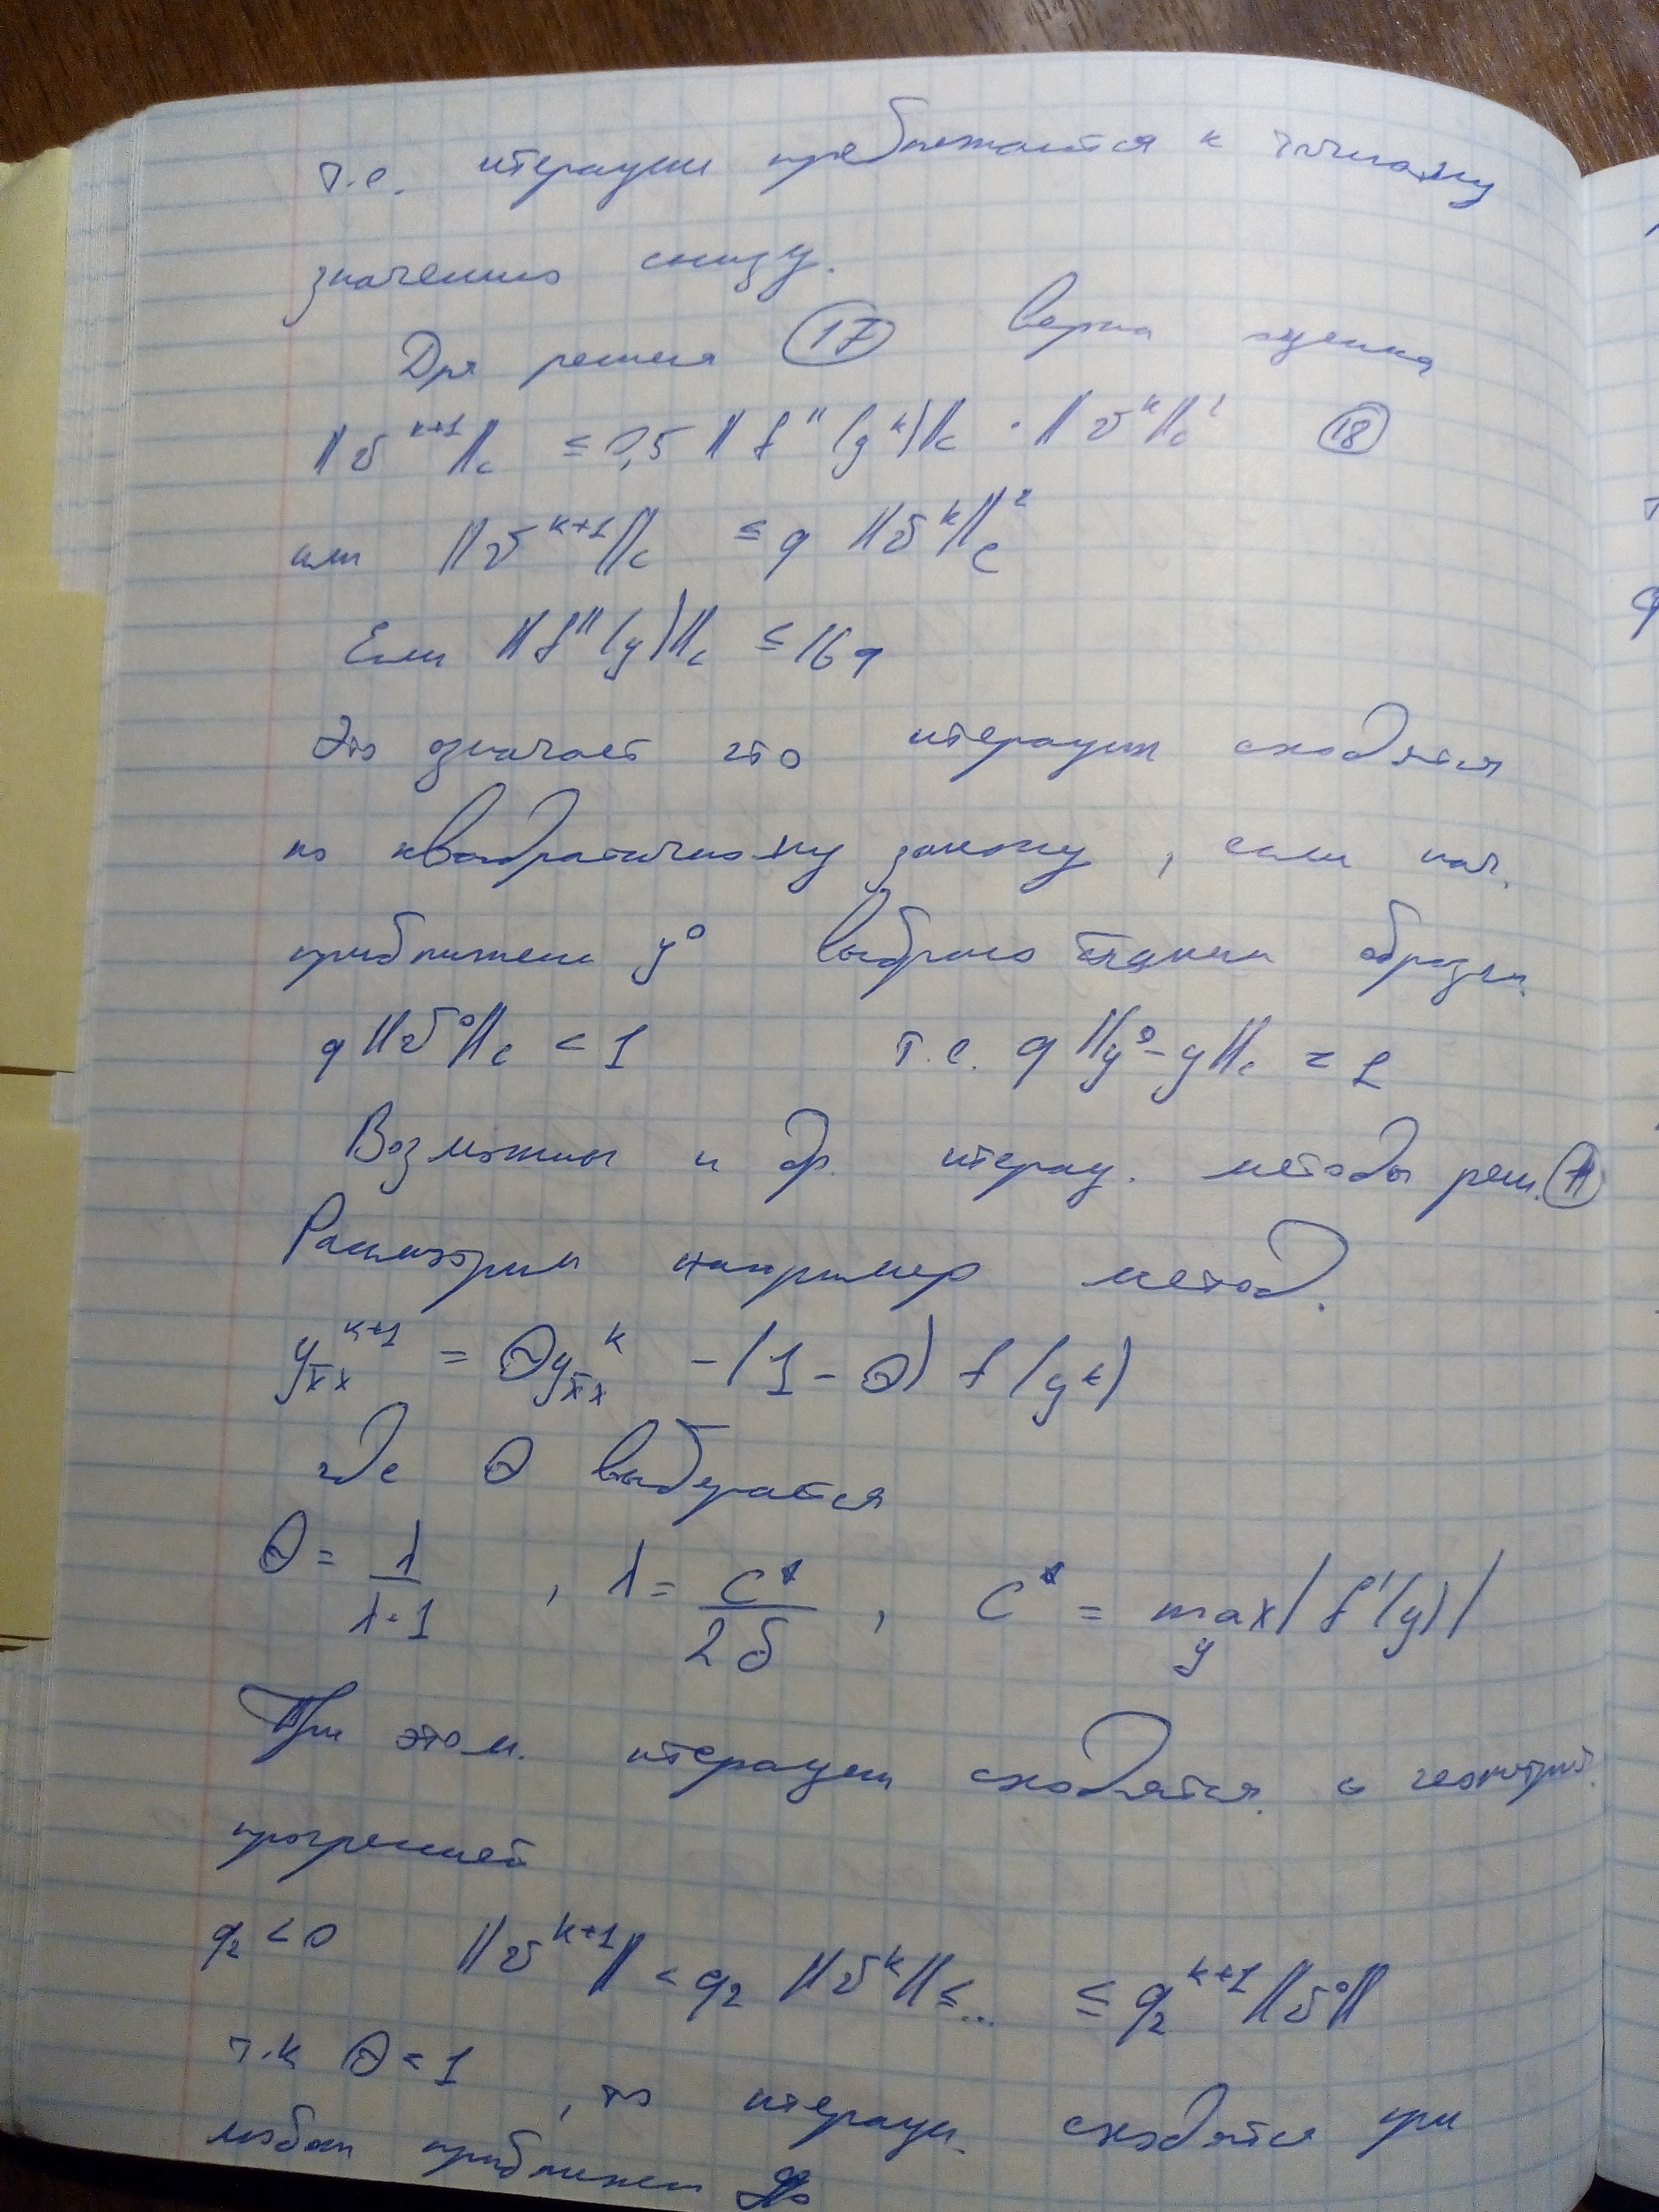 т.е. итерации приближаются к точному
значению снизу.
Для решения (17) верна оценка
||v^{k+1}||_c ≤ 0,5 ||f''(y^k)||_c · ||v^k||_c^2 (18)
или ||v^{k+1}||_c ≤ q ||v^k||_c^2
Если ||f''(y)||_c ≤ 16q
Это означает что итерации сходятся
по квадратичному закону, если нач.
приближение y^0 выбрано таким образом
q||v^0||_c < 1 т.е. q||y^0-y||_c < 1
Возможны и др. итерац. методы реш.
Рассмотрим например метод.
y_{x̄x}^{k+1} = θy_{x̄x}^k - (1-θ) f(y^k)
где θ выбирается
θ = λ/(λ+1), λ = C*/(2δ), C* = max_y |f'(y)|
При этом. итерации сходятся. с геометрич.
прогрессией
q_2 < 0 ||v^{k+1}|| < q_2 ||v^k|| ≤ ... ≤ q_2^{k+1} ||v^0||
т.к θ < 1, то итерац. сходятся при
любом приближен